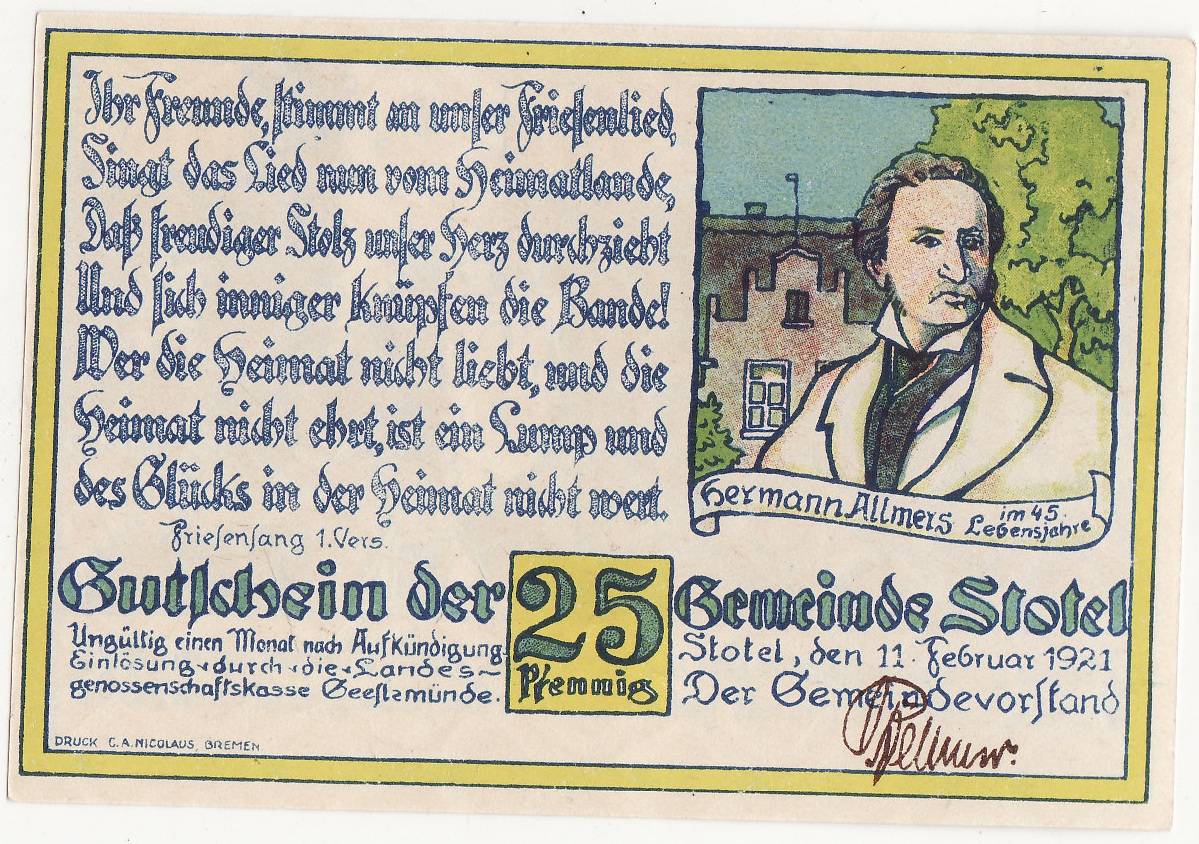 Ihr Freunde, stimmt an unser Friesenlied,
Singt das Lied nun vom Heimatlande,
Daß freudiger Stolz unser Herz durchzieht
Und sich inniger knüpfen die Bande!
Wer die Heimat nicht liebt, und die
Heimat nicht ehrt, ist ein Lump und
des Glücks in der Heimat nicht wert.
Friesensang 1. Vers.
Hermann Allmers im 45.
Lebensjahre
Gutschein der 25 Gemeinde Stotel
Pfennig
Ungültig einen Monat nach Aufkündigung
Einlösung durch die Landes-
genossenschaftskasse Geestemünde.
Stotel, den 11. Februar 1921
Der Gemeindevorstand
DRUCK C.A. NICOLAUS, BREMEN